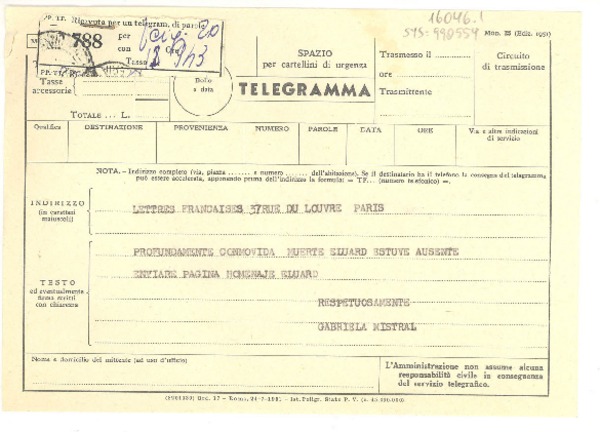 16046.1
SYS: 990554
PP. TT. Ricevuta per un telegram. di parole
788
per
con
Tassa
Tassa accessorie
TOTALE ... L.
Bollo a data
SPAZIO
per cartellini di urgenza
TELEGRAMMA
Mod. 25 (Ediz. 1951)
Trasmesso il
ore
Trasmittente
Circuito
di trasmissione
Qualifica DESTINAZIONE PROVENIENZA NUMERO PAROLE DATA ORE Via e altre indicazioni
di servizio
NOTA. - Indirizzo completo (via, piazza ........ e numero ........ dell'abitazione). Se il destinatario ha il telefono la consegna del telegramma,
può essere accelerata, apponendo prima dell'indirizzo la formula: = TF... (numero telefonico) =.
INDIRIZZO
(in caratteri
maiuscoli)
LETTRES FRANCAISES 37RUE DU LOUVRE PARIS
TESTO
ed eventualmente
firma scritti
con chiarezza
PROFUNDAMENTE CONMOVIDA MUERTE ELUARD ESTUVE AUSENTE
ENVIARE PAGINA HOMENAJE ELUARD
RESPETUOSAMENTE
GABRIELA MISTRAL
Nome e domicilio del mittente (ad uso d'ufficio)
L'Amministrazione non assume alcuna
responsabilità civile in conseguenza
del servizio telegrafico.